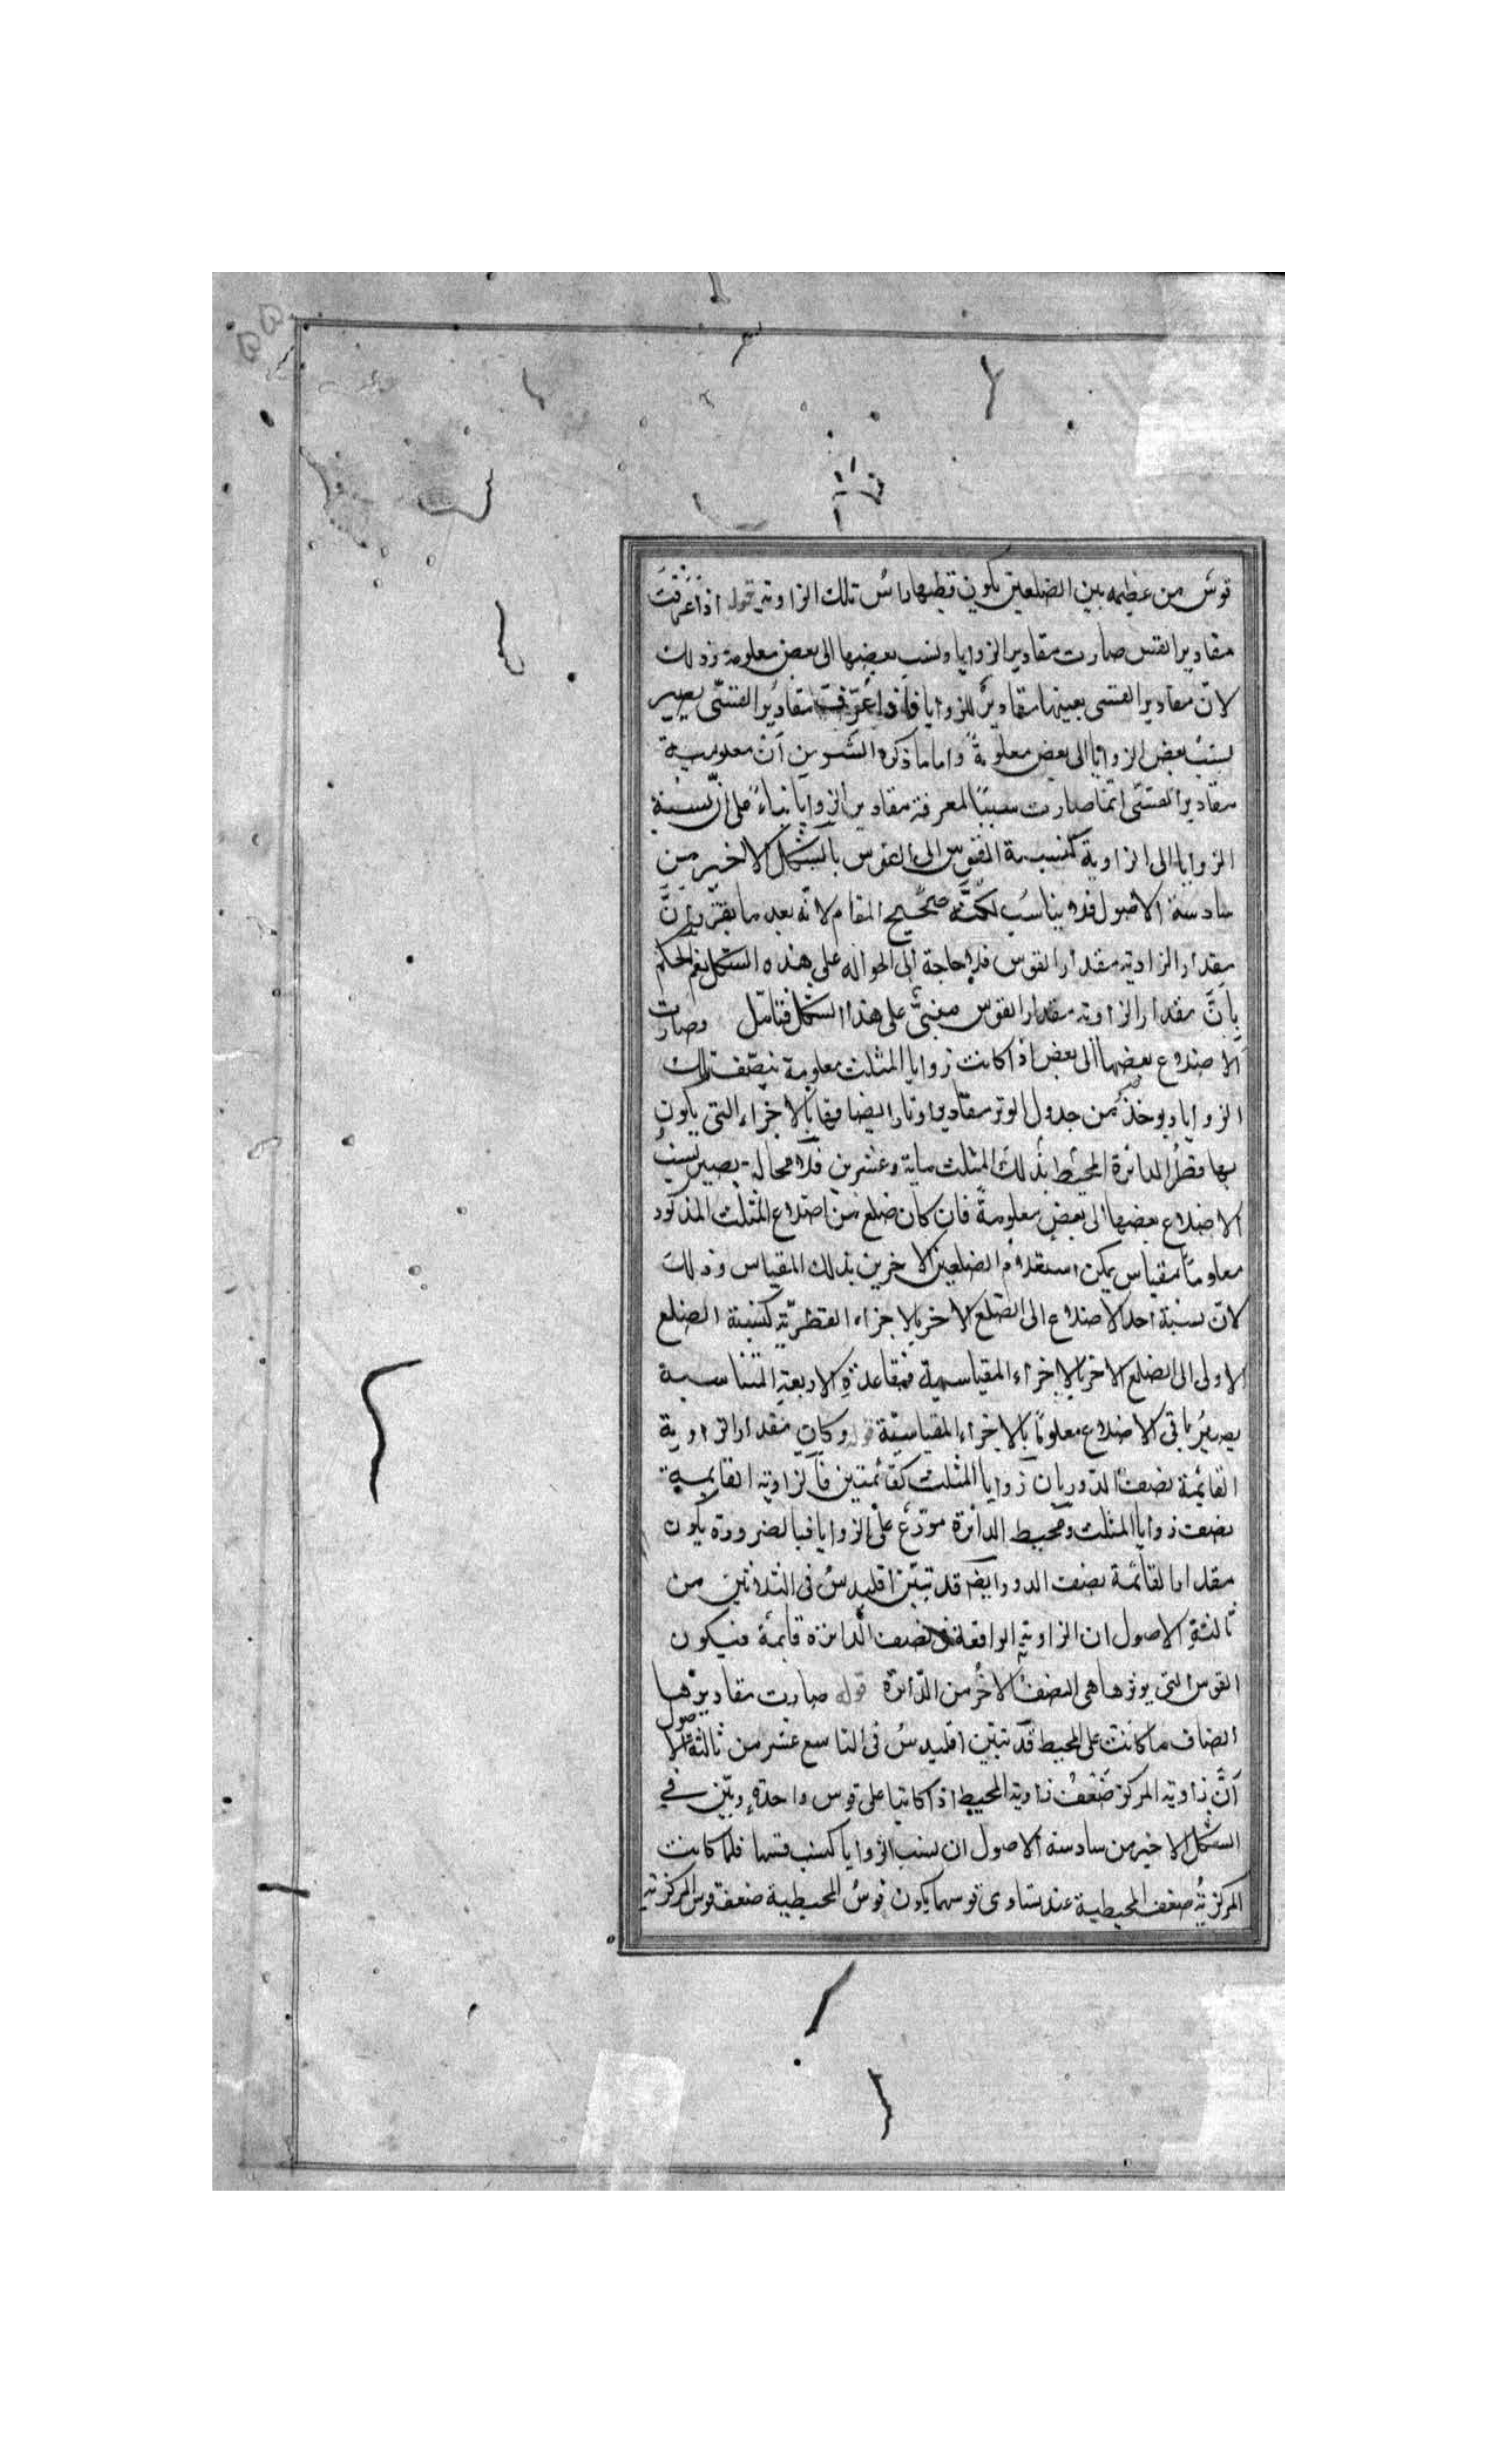 قوس من عظيمه بين الضلعين يكون قطبها راس تلك الزاوية قوله اذا عرفت
مقادير القسى صارت مقادير الزوايا ونسب بعضها الى بعض معلومة وذلك
لان مقادير القسى بعينها مقادير للزوايا فاذا عرفت مقادير القسى يصير
نسب بعض الزوايا الى بعض معلومة واما ما ذكره الشـ من ان معلومية
مقادير القسى انما صارت سببا لمعرفة مقادير الزوايا بناء على ان نسبة
الزوايا الى الزاوية كنسبة القوس الى القوس بالشكل الاخير من
سادسة الاصول فلا يناسب لكنه صحيح المقام لانه بعد ما يقرر ان
مقدار الزاوية مقدار القوس فلا حاجة الى الحواله على هذه الشكل نعم الحكم
بان مقدار الزاوية مقدار القوس مبنى على هذا الشكل فتامل وصارت
الاضلاع بعضها الى بعض اذا كانت زوايا المثلث معلومة ينصف تلك
الزوايا ويوخذ من جدول الوتر مقادير اوتار انصافها بالاجزاء التى يكون
بها قطر الدائرة المحيط بذلك المثلث ماية وعشرين فلا محالة يصير نسب
الاضلاع بعضها الى بعض معلومة فان كان ضلع من اضلاع المثلث المذكور
معلوما بمقياس يمكن استعلام الضلعين الاخرين بذلك المقياس وذلك
لان نسبة احد الاضلاع الى الضلع الاخر بالاجزاء القطرية كنسبة الضلع
الاولى الى الضلع الاخر بالاجزاء المقياسية فبقاعدة الاربعة المتناسبة
يصير باقى الاضلاع معلوما بالاجزاء المقياسية قوله وكان مقدار الزاوية
القائمة نصف الدور بان زوايا المثلث كقائمتين فالزاوية القايمة
نصف زوايا المثلث ومحيط الدائرة موزع على الزوايا فبالضرورة يكون
مقدار القائمة نصف الدور وايضا قد تبين اقليدس فى الثلاثين من
ثالثة الاصول ان الزاوية الواقعة فى نصف الدائرة قايمة فيكون
القوس التى يوترها هى النصف الاخر من الدائرة قوله صارت مقاديرها
انصاف ما كانت على المحيط قد تبين اقليدس فى التاسع عشر من ثالثة الاصول
ان زاوية المركز ضعف زاوية المحيط اذا كانتا على قوس واحدة وبين في
الشكل الاخير من سادسة الاصول ان نسب الزوايا كنسب قسيها فلما كانت
المركزية ضعف المحيطية عند تساوى قوسهما يكون قوس المحيطية ضعف قوس المركزية